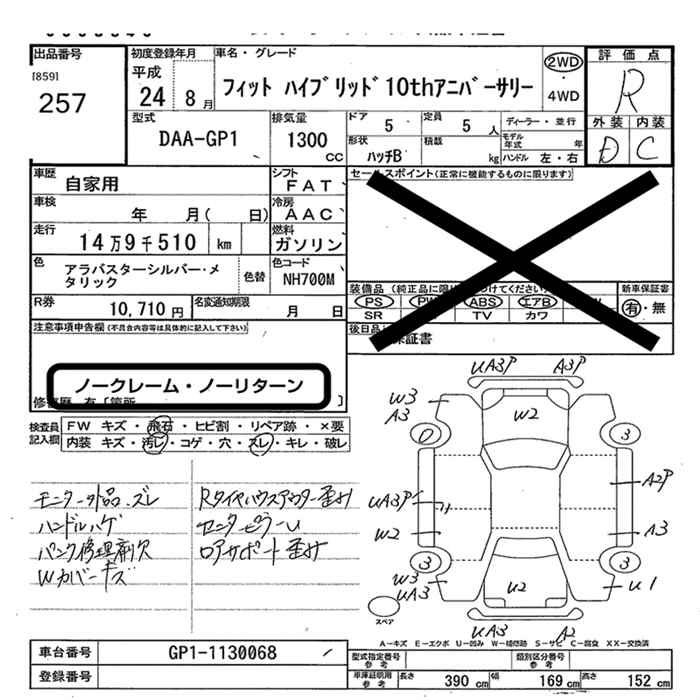 出品番号
[859]
257
初度登録年月
平成
24 8月
車名・グレード
フィット ハイブリッド10thアニバーサリー
2WD
・
4WD
評価点
R
外装 内装
D C
型式
DAA-GP1
排気量
1300
CC
ドア
5
定員
5 人
ディーラー・並行
形状
ハッチB
積載
kg
モデル年式 年
ハンドル 左・右
車歴
自家用
シフト
FAT
セールスポイント(正常に機能するものに限ります)
車検
年 月( 日)
冷房
AAC
走行
14万9千510 km
燃料
ガソリン
色
アラバスターシルバー・メタリック
色替
色コード
NH700M
装備品 (純正品に限り つけてください)
PS PW ABS エアB W
SR TV カワ
新車保証書
有・無
R券
10,710円
名変通知期限
月 日
後日品
保証書
注意事項申告欄(不具合内容等は具体的に記入して下さい)
ノークレーム・ノーリターン
修復歴 有 [箇所 ]
検査員記入欄
FW キズ・飛石・ヒビ割・リペア跡・×要
内装 キズ・汚レ・コゲ・穴・スレ・キレ・破レ
モニター外品.ズレ
ハンドルハゲ
パンク修理剤欠
Wカバーキズ
Rタイヤハウスアウター歪み
センターピラーU
ロアサポート歪み
UA3P A3P
W3
A3
W2
3
UA3P
A2P
W2
A3
3 3
W3
UA3
U2
U1
UA3 A2
スペア
A-キズ E-エクボ U-凹み W-補修跡 S-サビ C-腐食 XX-交換済
車台番号
GP1-1130068
登録番号
型式指定番号
参考
類別区分番号
参考
車庫証明用
参考
長さ 390cm
幅 169cm
高さ 152cm